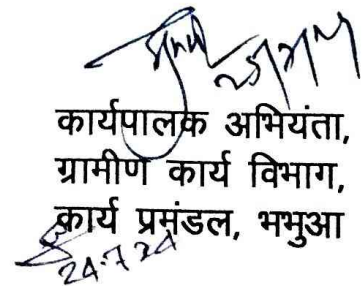 कार्यपालक अभियंता,
ग्रामीण कार्य विभाग,
कार्य प्रमंडल, भभुआ
24.7.24